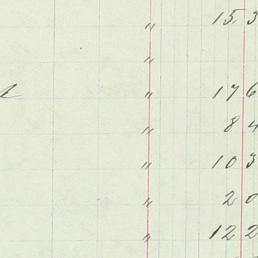 " 15 3
"
" 17 6
" 8 4
" 10 3
" 2 0
" 12 2